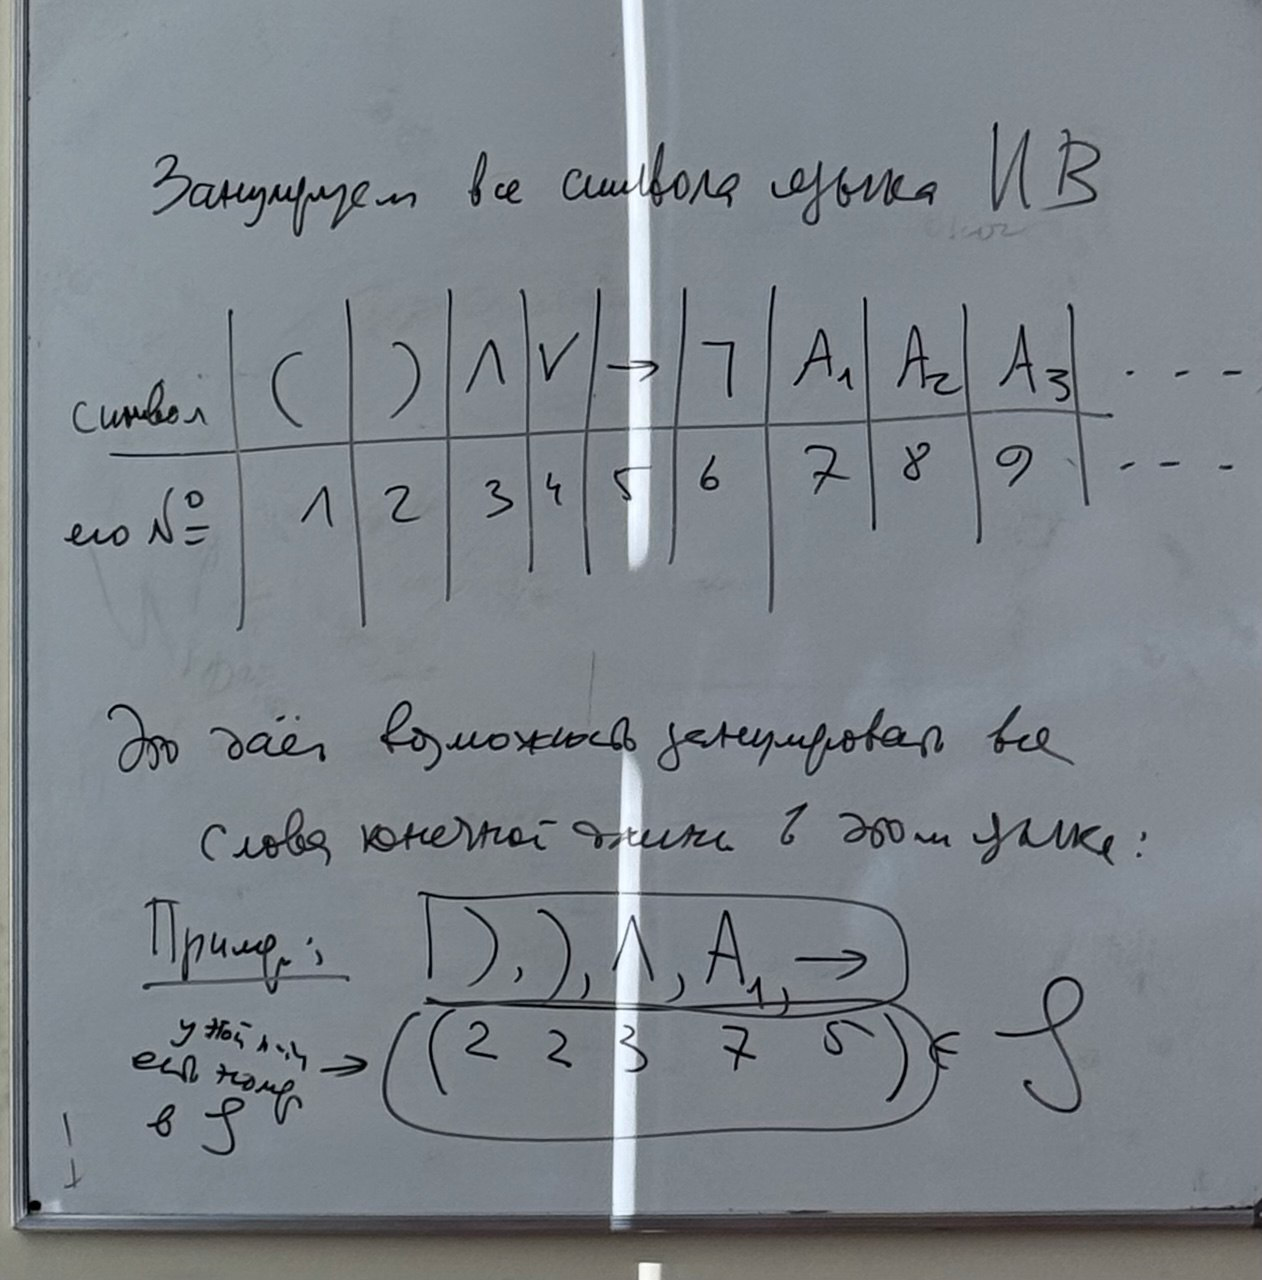 Занумеруем все символа языка ИВ
символ ( ) ∧ ∨ → ⅂ A₁ A₂ A₃ . - - -
его № 1 2 3 4 5 6 7 8 9 - - - -
Это даёт возможность занумеровать все
слова конечной длины в этом языке:
Пример: ), ), ∧, A₁, →
(2 2 3 7 5) ∈ 𝒮
у этой п-ти
есть номер →
в 𝒮